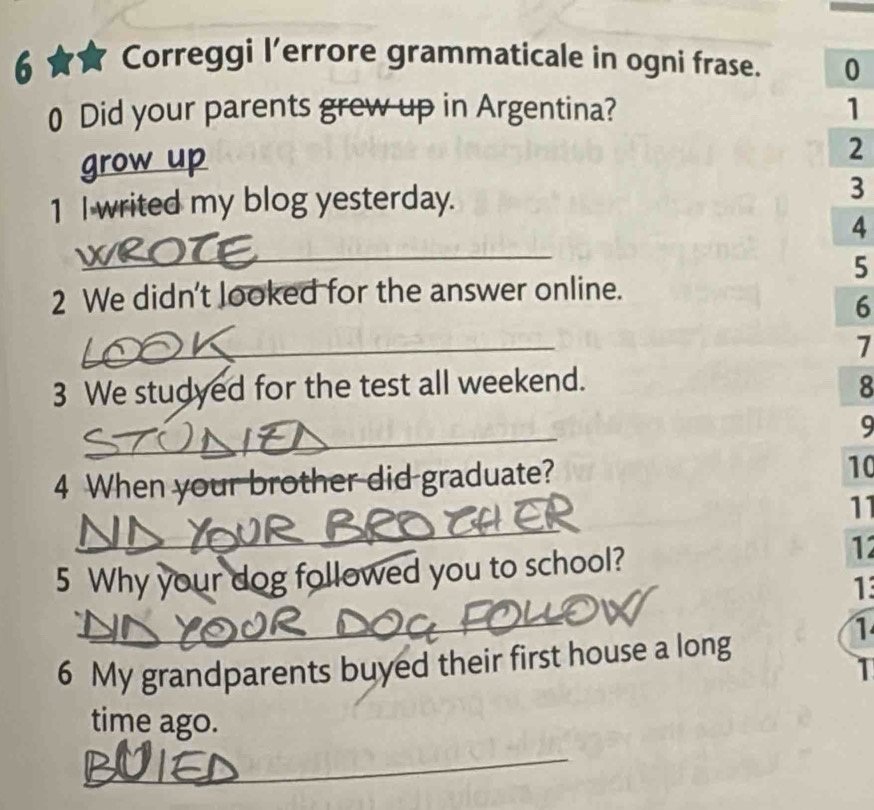 6 ★★ Correggi l'errore grammaticale in ogni frase.
0 Did your parents grew up in Argentina?
grow up
1 I writed my blog yesterday.
WROTE
2 We didn't looked for the answer online.
LOOK
3 We studyed for the test all weekend.
STUDIED
4 When your brother did graduate?
DID YOUR BROTHER
5 Why your dog followed you to school?
DID YOUR DOG FOLLOW
6 My grandparents buyed their first house a long
time ago.
BUIED
0
1
2
3
4
5
6
7
8
9
10
11
12